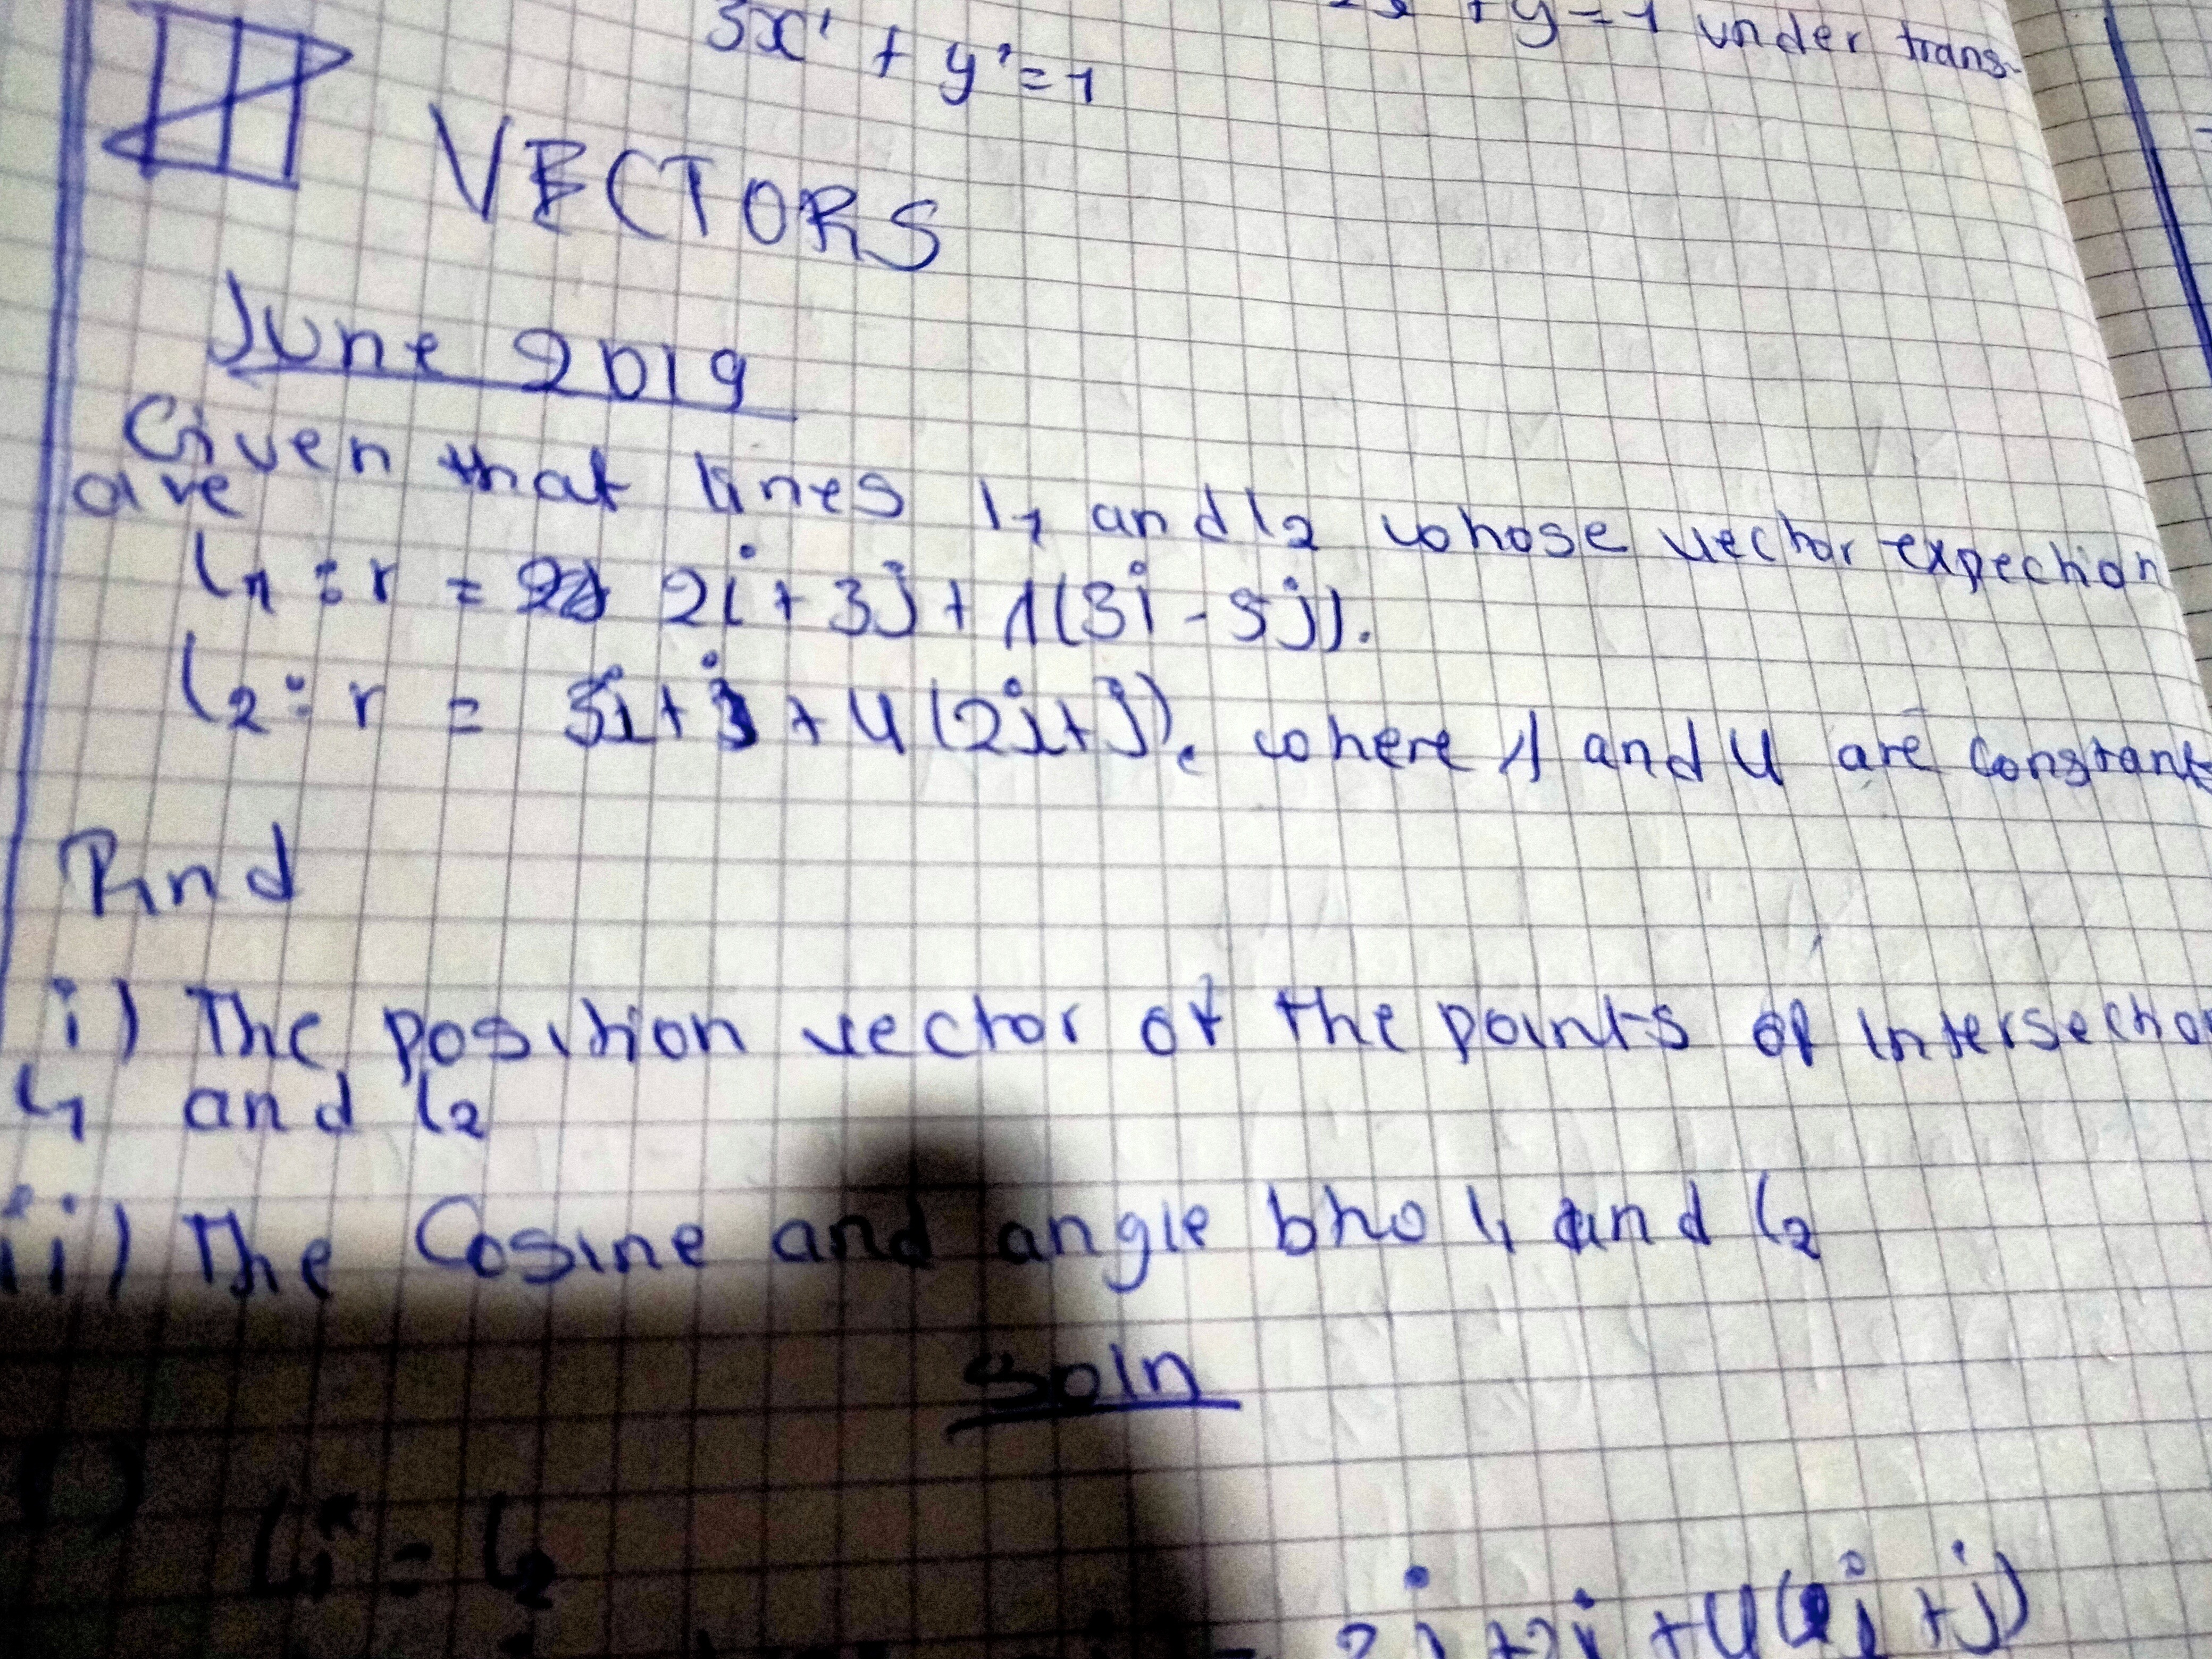 3x' + y' = 1
+ y = 1 under trans-
VECTORS
June 2019
Given that lines l1 and l2 whose vector expection
are
l1 : r = 2i + 3j + λ(3i - 5j).
l2 : r = 3i + j + μ(2i + j). where λ and μ are constant
Find
i) The position vector of the points of intersectio
l1 and l2
ii) The Cosine and angle btw l1 and l2
Soln
i)
l1 = l2
+ μ(2i + j)